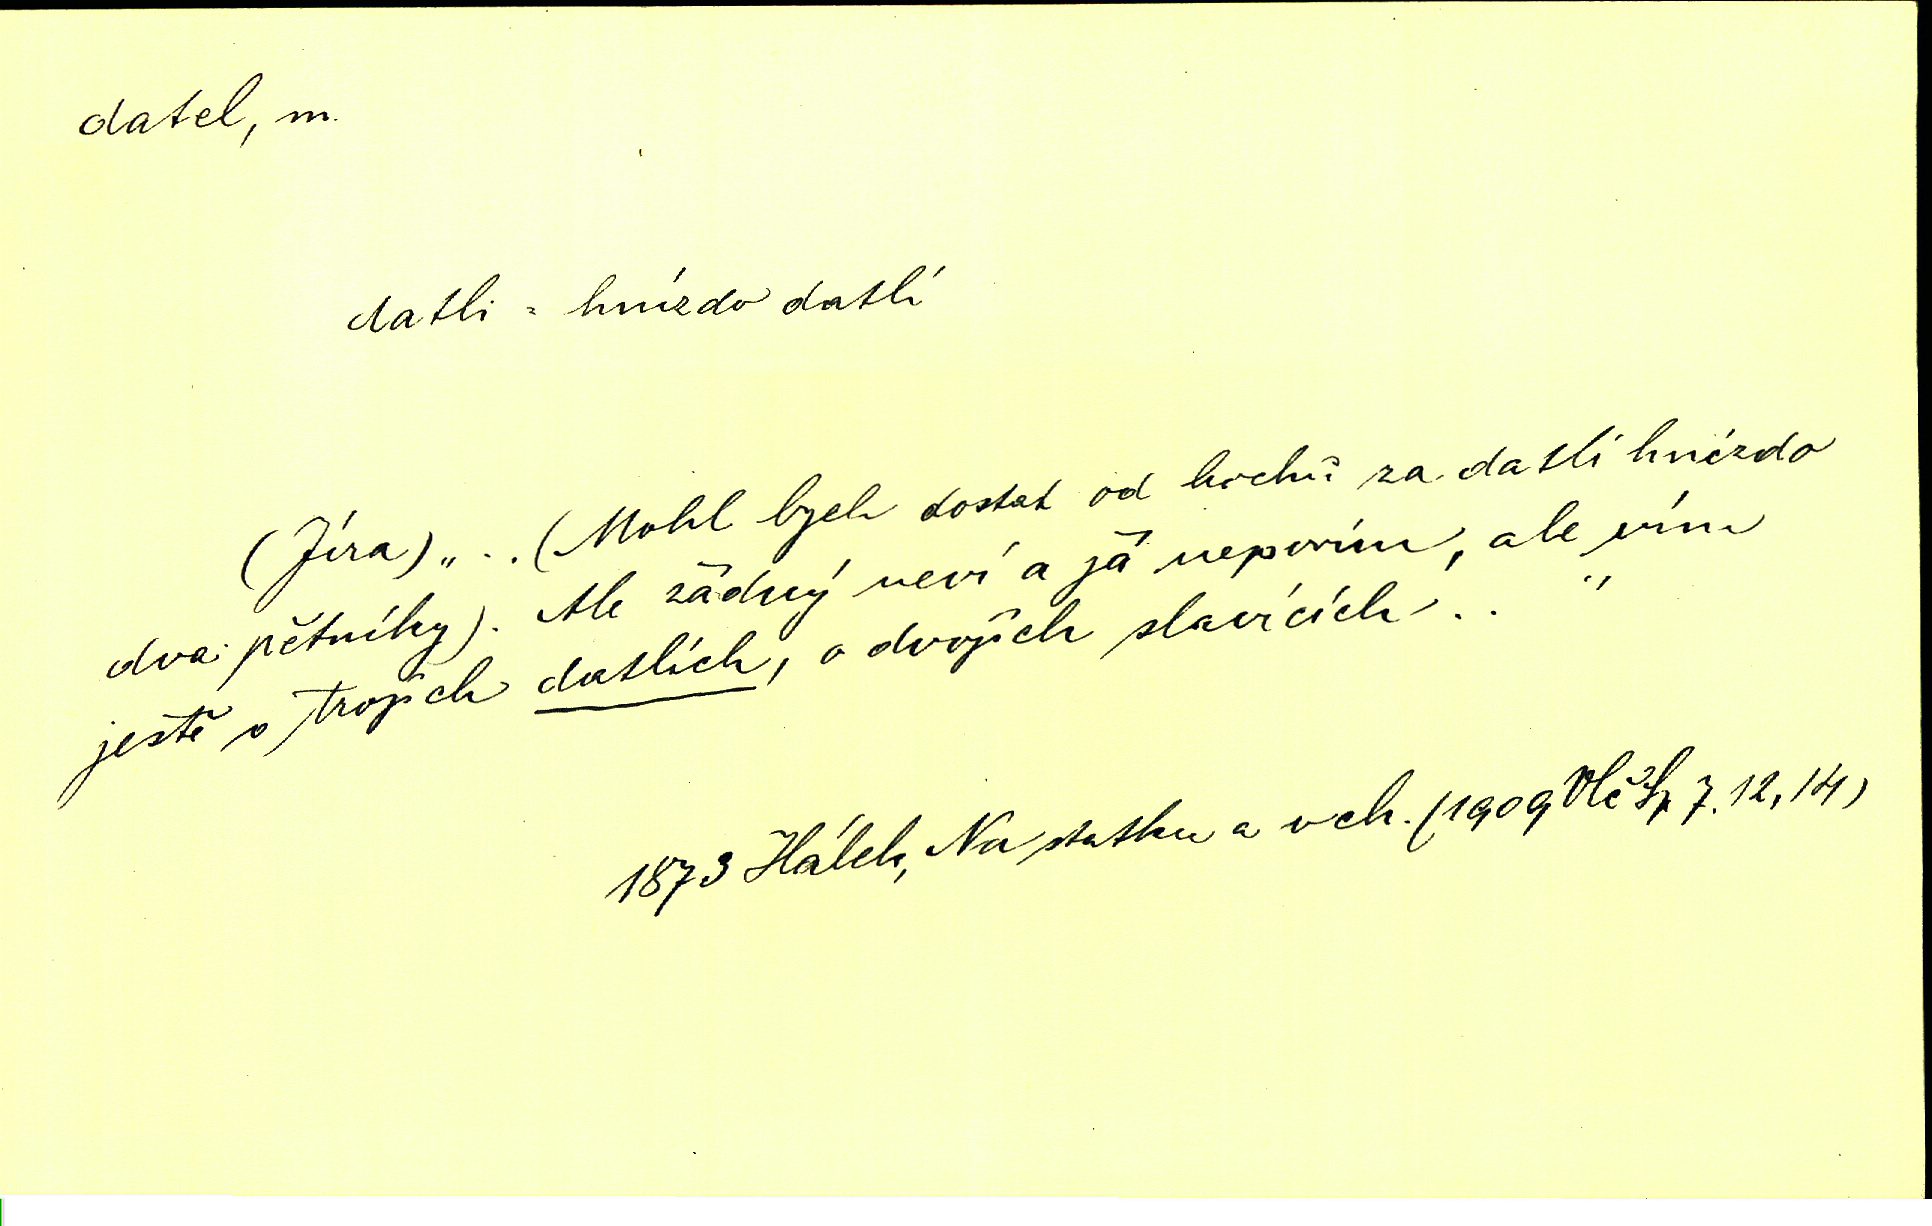 datel, m.
datli = hnízdo datlí
(Jíra) „ .. (Mohl bych dostat od hochů za datlí hnízdo
dva pětníky). Ale žádný neví a já nepovím, ale vím
ještě o trojích datlích, o dvojích slavících .. "
1873 Hálek, Na statku a v ch. (1909 Vlč Sp 7. 12, 14)